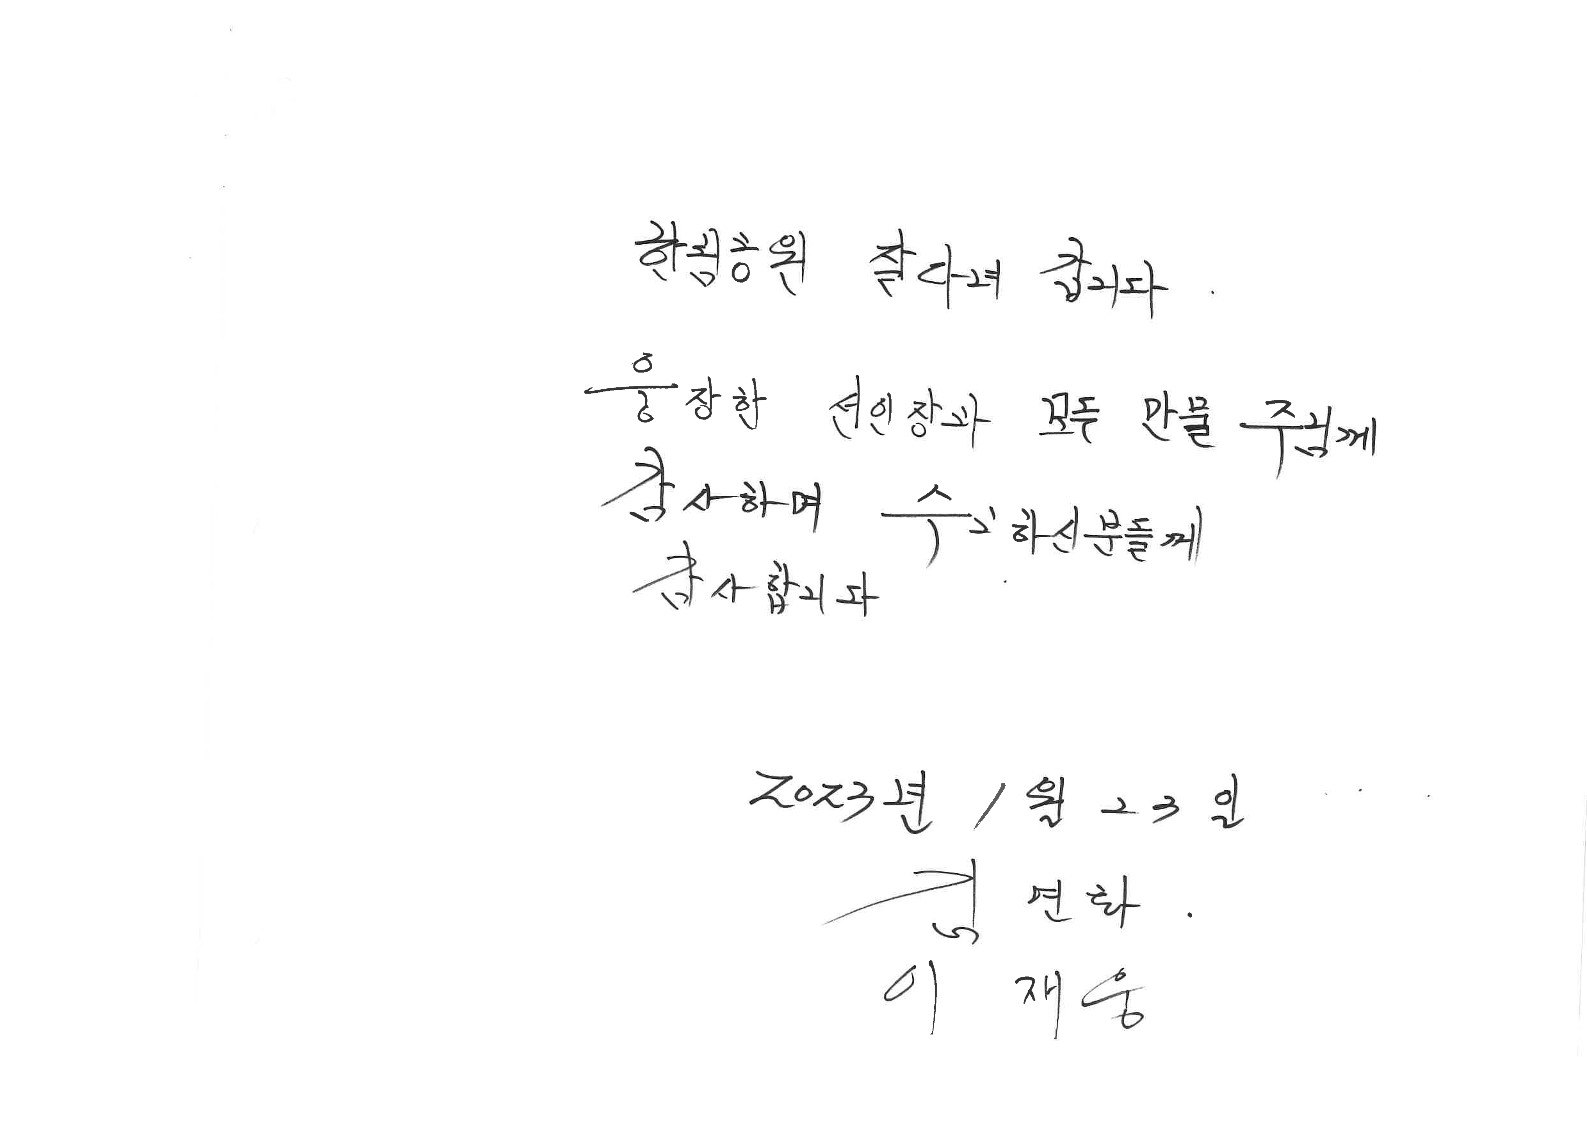 한림공원 잘다녀 갑니다.
웅장한 선인장과 모두 만물 주님께
감사하며 수고하신분들께
감사합니다
2023년 1월 23일
김 연화.
이 재웅